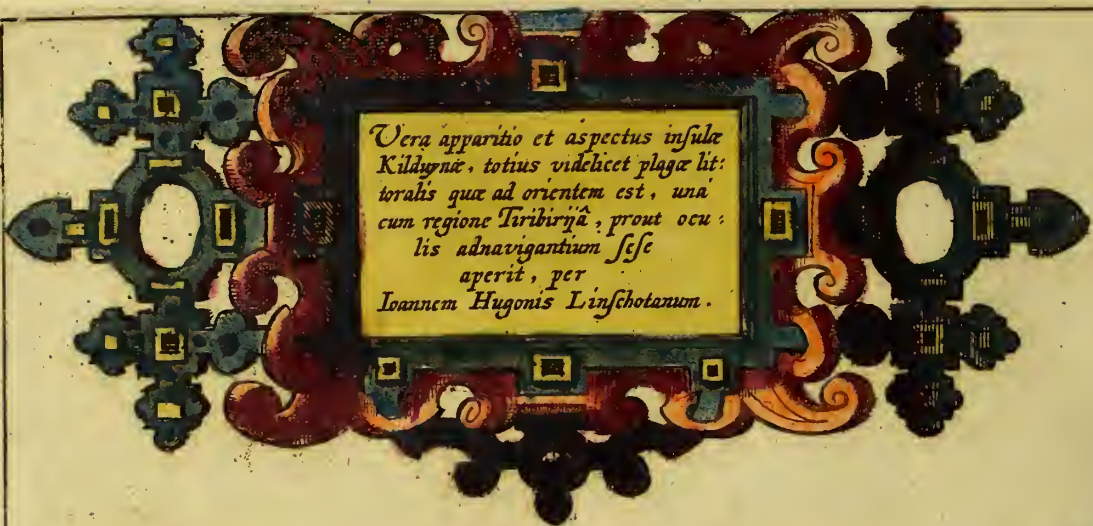 Vera apparitio et aspectus inſulæ
Kilduynæ, totius videlicet plagæ lit:
toralis quæ ad orientem est, una
cum regione Tiribirÿâ, prout ocu:
lis adnavigantium ſeſe
aperit, per
Ioannem Hugonis Linſchotanum.